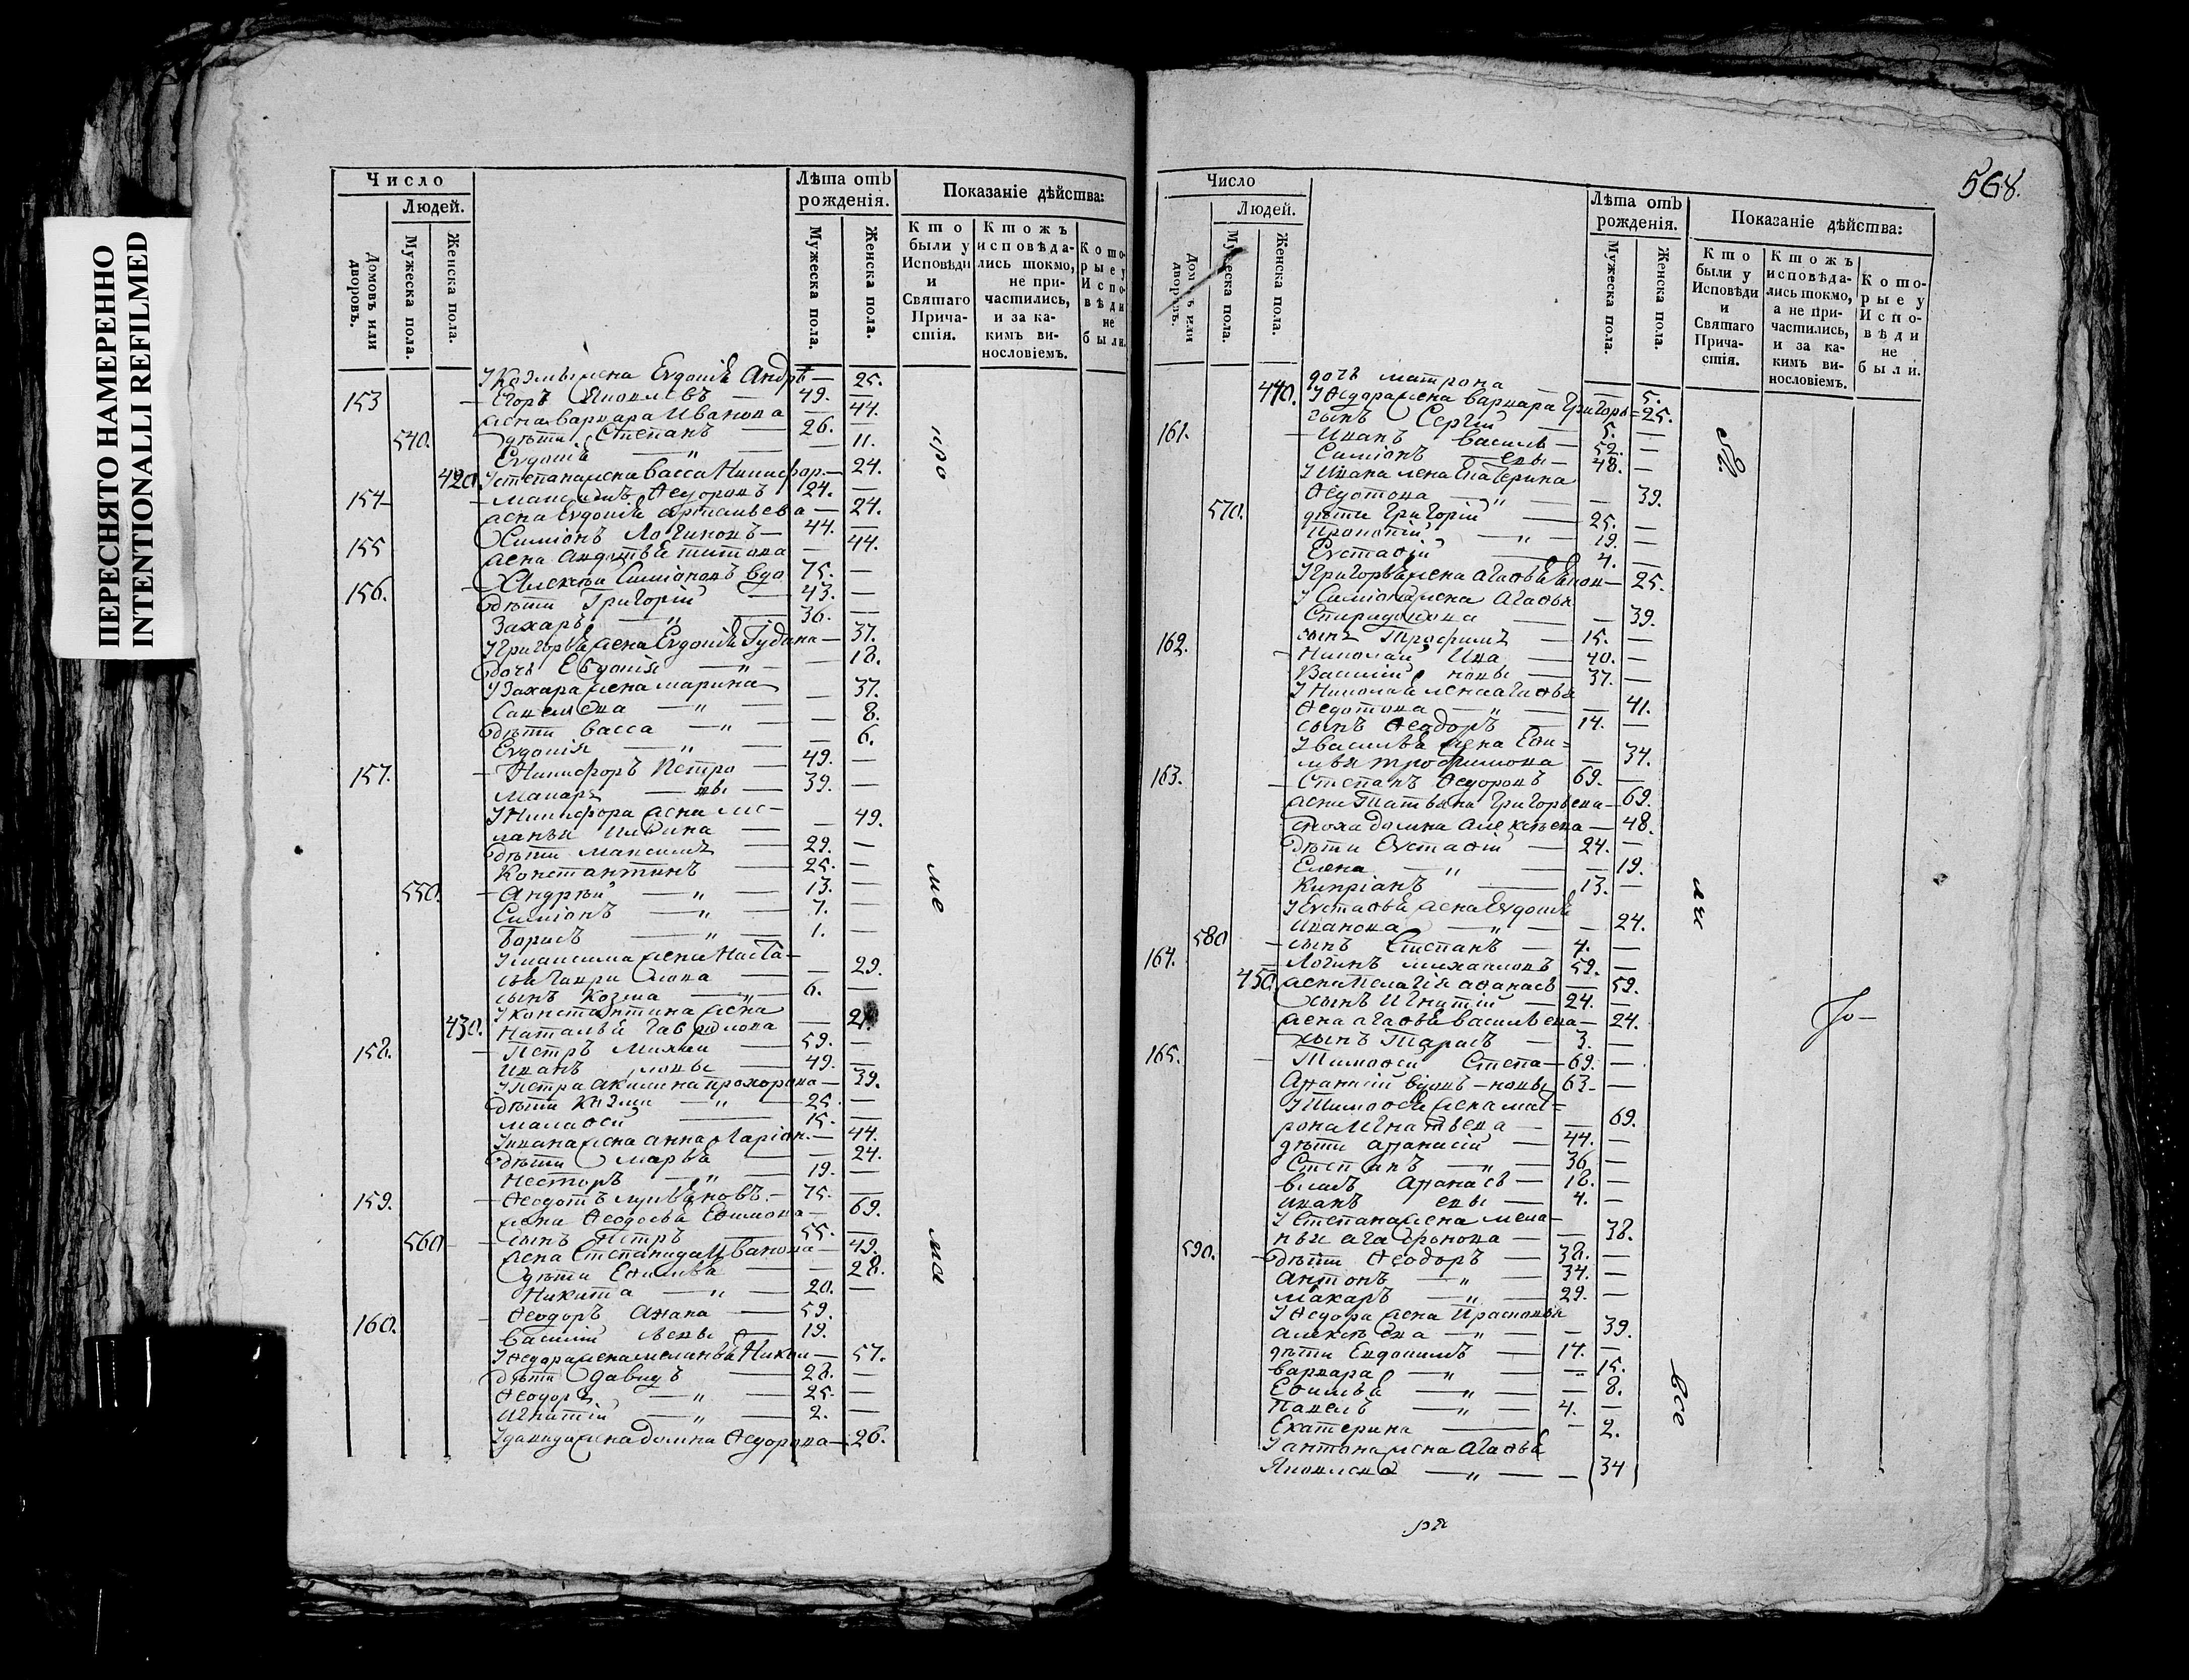 ПЕРЕСНЯТО НАМЕРЕННО
INTENTIONALLI REFILMED
Число
Людей.
Домовъ или дворовъ.
Мужеска пола.
Женска пола.
Лѣта отъ рожденія.
Мужеска пола.
Женска пола.
Показаніе дѣйства:
Кто были у Исповѣди и Святаго Причастія.
Ктожъ исповѣдались токмо, не причастились, и за какимъ винословіемъ.
Которые у Исповѣди не были.
У Козмы жена Евдокія Андрѣ — 25.
153 Егоръ Яковлевъ — 49. —
жена варвара Иванова — 44.
540. дѣти Степанъ — 26. —
Евдокія — " — 11.
420. У степана жена васса Никифор. — 24.
154 Ѳедоровъ 24. —
жена Евдокія — 24.
155 Симіонъ Логиновъ — 44. —
жена титова — 44.
156. Алексѣй Симіоновъ вдо 75. —
дѣти Григорій — 43. —
Захаръ — " — 36. —
У Григорья жена Евдокія — 37.
дочь Евдокія — " — 18.
У Захара жена марина
Савельева — " — 37.
дѣти васса — " — 8.
Евдокія — " — 6.
157. Никифоръ Петро — 49. —
Макаръ — вы — 39. —
У Никифора жена ме-
ланья — 49.
дѣти максимъ — 29. —
Константинъ — 25. —
550. Андрей — " — 13. —
Симіонъ — " — 7. —
Борисъ — " — 1. —
У максима жена Наста-
сья — 29.
сынъ Козма — " — 6. —
У константина жена
430. Наталья — 2
158. Петръ — 59. —
Иванъ — 49. —
У Петра Акилина прохорова — 39.
дѣти Козма — " — 25. —
15. —
У ивана жена анна Ларіон. — 44.
дѣти марѳа — 24.
Несторъ — " — 19. —
159. Ѳеодотъ 75. —
жена Ѳеодосья Ефимова — 69.
560 сынъ Петръ — 55. —
жена Степанида Иванова — 49.
дѣти — 28.
Никита — " — 20. —
160. Ѳеодоръ — 59.
Василій — 19.
У Ѳедора жена меланья Никол — 57.
дѣти давидъ — 28. —
Ѳеодоръ — " — 25. —
Игнатій — " — 2. —
У давида жена домна Ѳедорова — 26.
568.
Число
Людей.
Домовъ или дворовъ.
Мужеска пола.
Женска пола.
Лѣта отъ рожденія.
Мужеска пола.
Женска пола.
Показаніе дѣйства:
Кто были у Исповѣди и Святаго Причастія.
Ктожъ исповѣдались токмо, а не причастились, и за какимъ винословіемъ.
Которые у Исповѣди не были.
дочь матрона — 5.
440. У Ѳедора жена варвара Григорь = 25.
сынъ Сергій — 5. —
161. Иванъ Василь — 52. —
Симіонъ — евы — 48. —
У Ивана жена Екатерина
Ѳедотова — " — 39.
570. дѣти Григорій — 25. —
Прокопій — " — 19. —
Евстафій — 4. —
У Григорья жена агафья — 25.
У Симіона жена Агафья
Спиридонова — 39.
сынъ Трофимъ — 15. —
162. Николай Ива — 40. —
Василій новы — 37. —
У Николая жена агафья
Ѳедотова — " — 41.
сынъ Ѳеодоръ — 14. —
У василья жена Ефи=
мья трофимова — 34.
163. Степанъ Ѳедоровъ 69. —
жена Татьяна Григорьева — 69.
сноха домна алексѣева — 48.
дѣти Евстафій — 24. —
Елена — " — 19.
Кипріанъ — 13. —
У Евстафья жена Евдокія
Иванова — " — 24.
580 сынъ Степанъ — 4. —
164. Логинъ михайловъ 59. —
450. жена Пелагія афанась — 59.
сынъ Игнатій — 24. —
жена агафья васильева — 24.
сынъ Тарасъ — 3. —
165. Тимофей Степа — 69. —
Афанасій вдовъ — новы 63 —
У Тимофея жена мат=
рона Игнатьева — 69.
дѣти афанасій — 44. —
Степанъ — " — 36 —
Афанась — 18. —
иванъ евы — 4. —
У Степана жена мела-
нья — 38.
590. дѣти Ѳеодоръ — 38. —
антонъ — " — 34. —
макаръ — " — 29. —
У Ѳедора жена Прасковья
алексѣева — " — 39.
дѣти Евдокимъ — 14. —
варвара — " — 15.
Ефимья — " — 8.
Павелъ — " — 4. —
Екатерина — 2.
У антона жена Агафья
Яковлева — " — 34